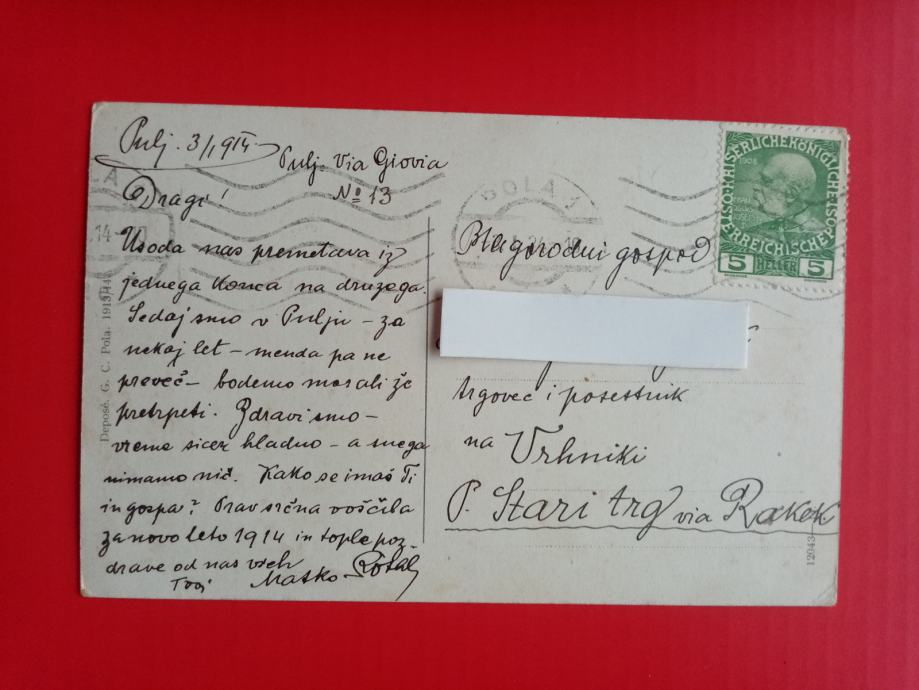 Pulj. 3/1 914.
Pulj. Via Giovia
No 13
Dragi!
Usoda nas premetava iz
jednega konca na druzega.
Sedaj smo v Pulju – za
nekaj let – menda pa ne
preveč – bodemo morali že
pretrpeti. Zdravi smo –
vreme sicer hladno – a snega
nimamo nič. Kako se imaš Ti
in gospa? Prav srčna voščila
za novo leto 1914 in tople poz-
drave od nas vseh
Tvoj Matko
Blagorodni gospod
trgovec i posestnik
na Vrhniki
P. Stari trg via Rakek
Deposé. G. C. Pola. 1913/14
12043
POLA 1
14
KAISERLICHE KÖNIGLICHE ÖSTERREICHISCHE POST
1908
5 HELLER 5